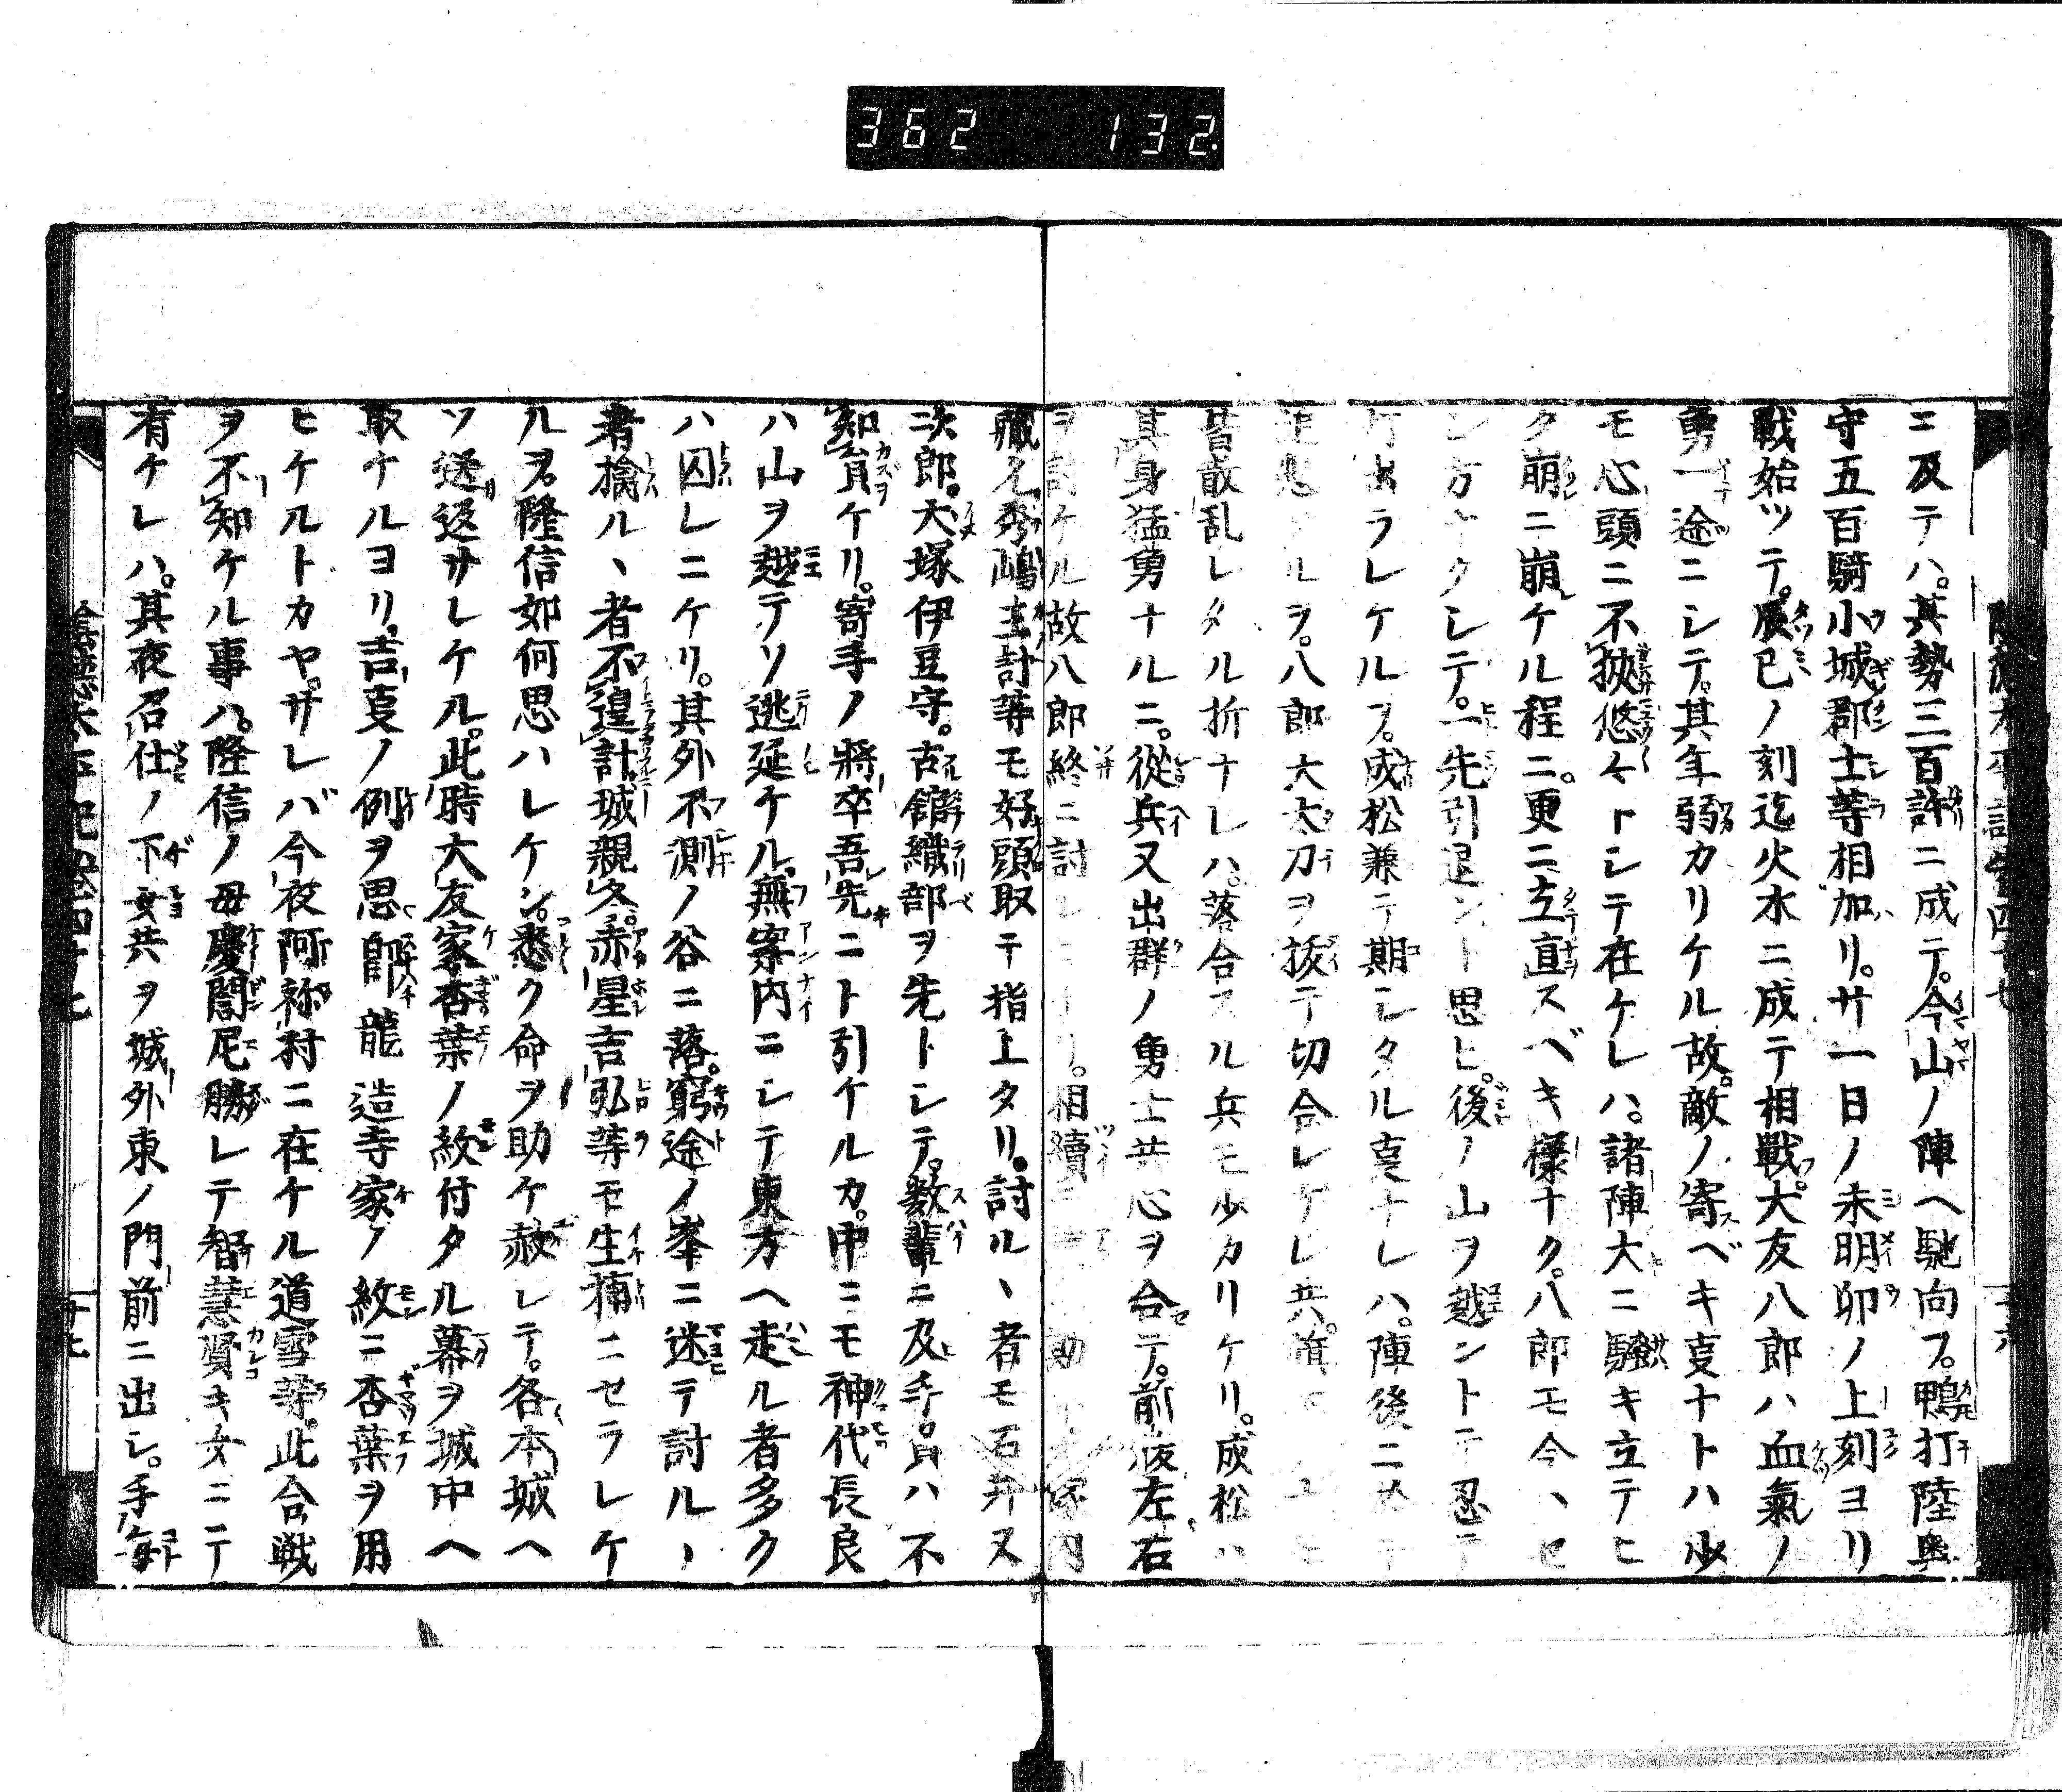 362 132.
ニ及テハ。其勢三百許ニ成テ。今山ノ陣ヘ馳向フ。鴨打陸奥
守五百騎小城郡士等相加リ。サ一日ノ未明卯ノ上刻ヨリ
戦始ツテ。辰巳ノ刻迄火水ニ成テ相戦フ。大友八郎ハ血氣ノ
勇一途ニシテ。其年弱カリケル故。敵ノ寄ベキ叓ナトハ少
モ心頭ニ不挾悠々トシテ在ケレハ。諸陣大ニ騒キ立テヒ
タ崩ニ崩ケル程ニ。更ニ立直スベキ様ナク。八郎モ今ハセ
ン方ナクシテ。一先引退ント思ヒ。後ノ山ヲ越ントテ忍テ
出ラレケルヲ。成松兼テ期シタル叓ナレハ。陣後ニ
ルヲ。八郎大太刀ヲ抜テ切合レケレ共。
皆散乱レタル折ナレハ。落合スル兵モ少カリケリ。成松ハ
其身猛勇ナルニ。從兵又出群ノ勇士共心ヲ合テ。前後左右
ヲ討ケル故八郎終ニ討レニケリ。相續
藏允秀嶋主計等モ好頭取テ指上タリ。討ルヽ者モ石井又
次郎。犬塚伊豆守。古舘織部ヲ先トシテ。数輩ニ及ヒ手負ハ不
知員ケリ。寄手ノ將卒吾先ニト引ケルカ。中ニモ神代長良
ハ山ヲ越テソ逃延ケル。無案内ニシテ東方ヘ走ル者多ク
ハ囚レニケリ。其外不測ノ谷ニ落。窮途ノ峯ニ迷テ討ルヽ
者擒ルヽ者不遑計。城親久。赤星吉弘等モ生捕ニセラレケ
ルヲ。隆信如何思ハレケン。悉ク命ヲ助ケ赦レテ。各本城ヘ
ソ送返サレケル。此時大友家杏葉ノ紋付タル幕ヲ城中ヘ
取ケルヨリ。吉叓ノ例ヲ思即龍造寺家ノ紋ニ杏葉ヲ用
ヒケルトカヤ。サレバ今夜阿祢村ニ在ケル道雪等。此合戦
ヲ不知ケル事ハ。隆信ノ母慶誾尼勝レテ智慧賢キ女ニテ
有ケレハ。其夜召仕ノ下女共ヲ城外東ノ門前ニ出シ。手毎